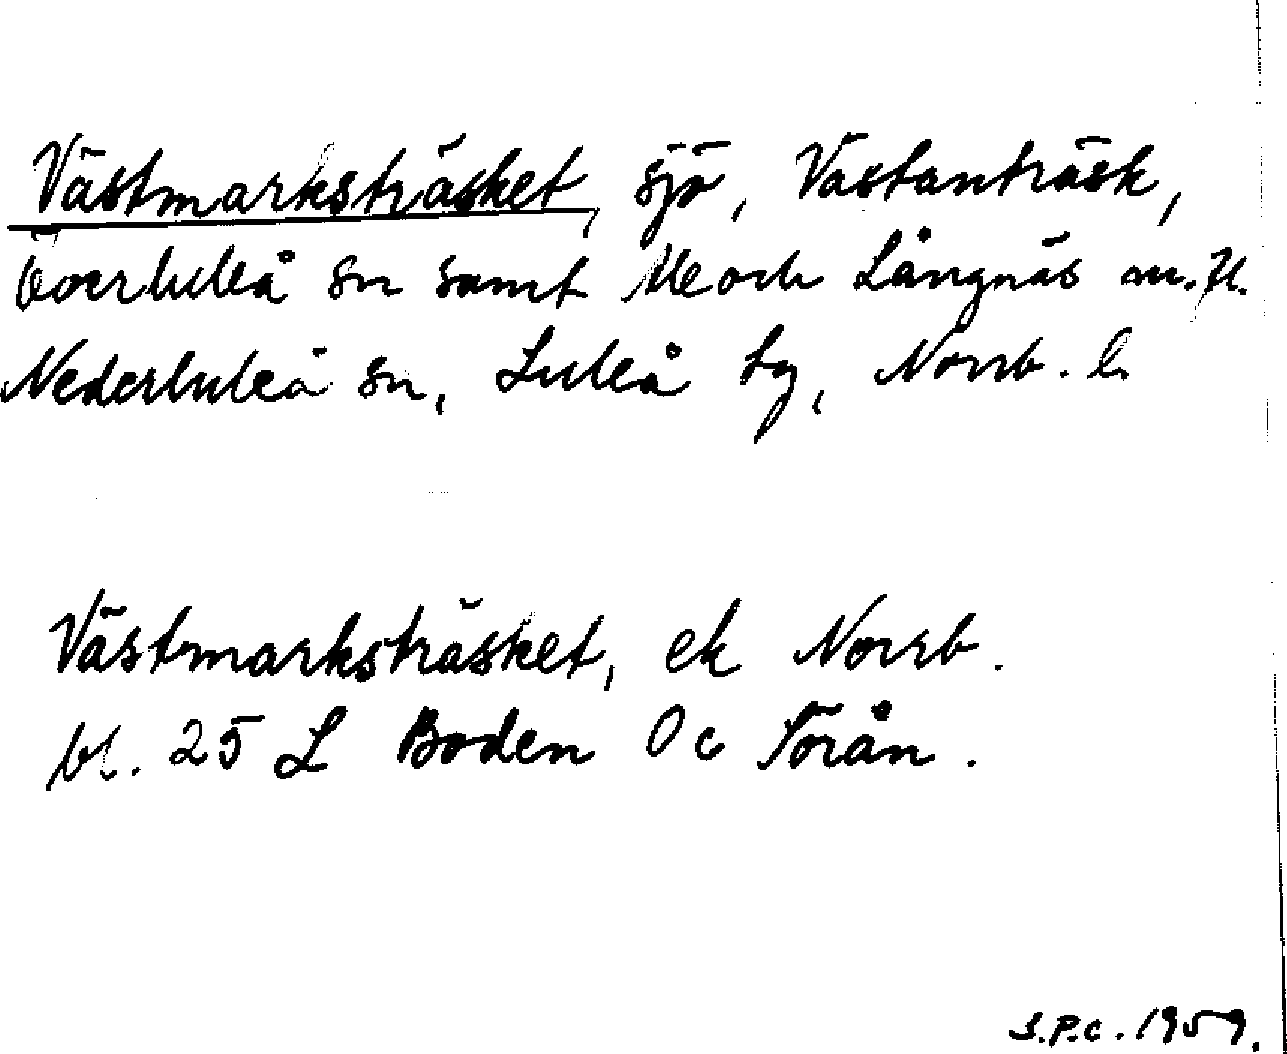 Västmarksträsket, sjö, Västanträsk,
Överluleå sn samt Ale och Långnäs m.fl.
Nederluleå sn, Luleå tg, Norrb. l.
Västmarksträsket, ek Norrb.
bl. 25 L Boden 0c Törån.
S.P.C. 1959.